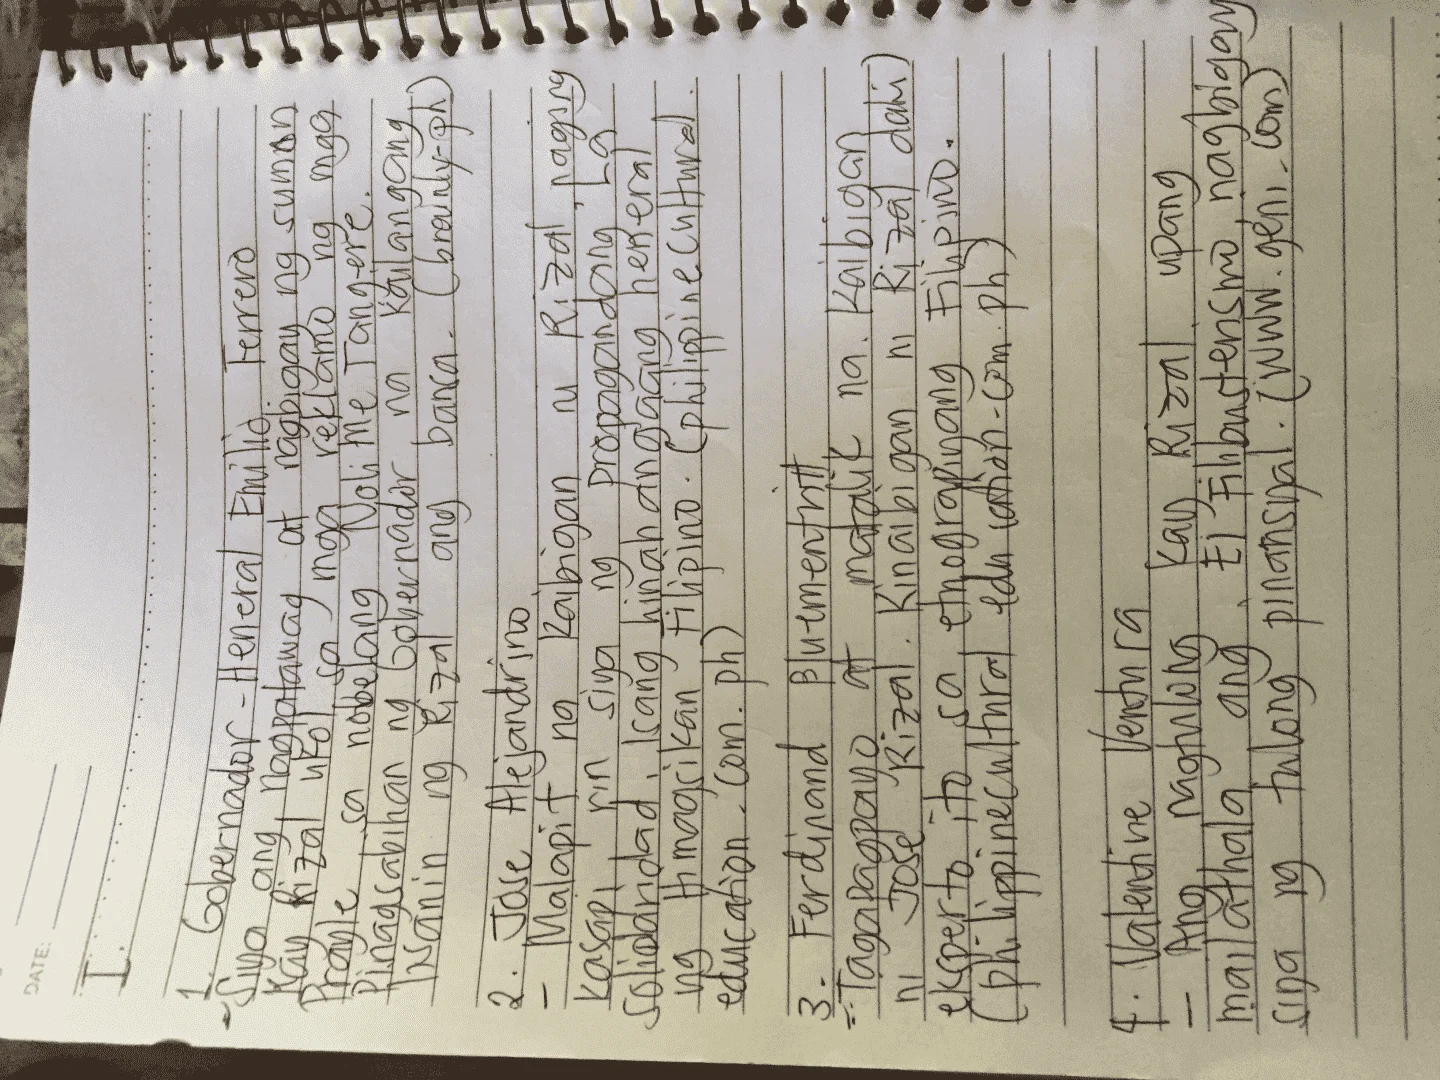 DATE:
I.
1. Gobernador-Heneral Emilio Terrero
- Siya ang nagpatawag at nagbigay ng sumon
kay Rizal ukol sa mga reklamo ng mga
Prayle sa nobelang Noli me Tangere.
Pinagsabihan ng Gobernador na kailangang
lisanin ng Rizal ang bansa. (brainly-ph)
2. Jose Alejandrino
- Malapit ng kaibigan ni Rizal, naging
kasapi rin siya ng propagandang La
solidaridad, isang hinahangaang heneral
ng himagsikan Filipino. (philippinecultural
education.com.ph)
3. Ferdinand Bluementritt
- Tagapagpayo at matalik na kaibigan
ni Jose Rizal. Kinaibigan ni Rizal dahil
eksperto ito sa etnograpiyang Filipino.
(philippinecultural education.com.ph)
4. Valentine Ventura
- Ang nagtulong kay Rizal upang
mailathala ang El Filibustersmo, nagbigay
siya ng tulong pinansyal. (www.geni.com)